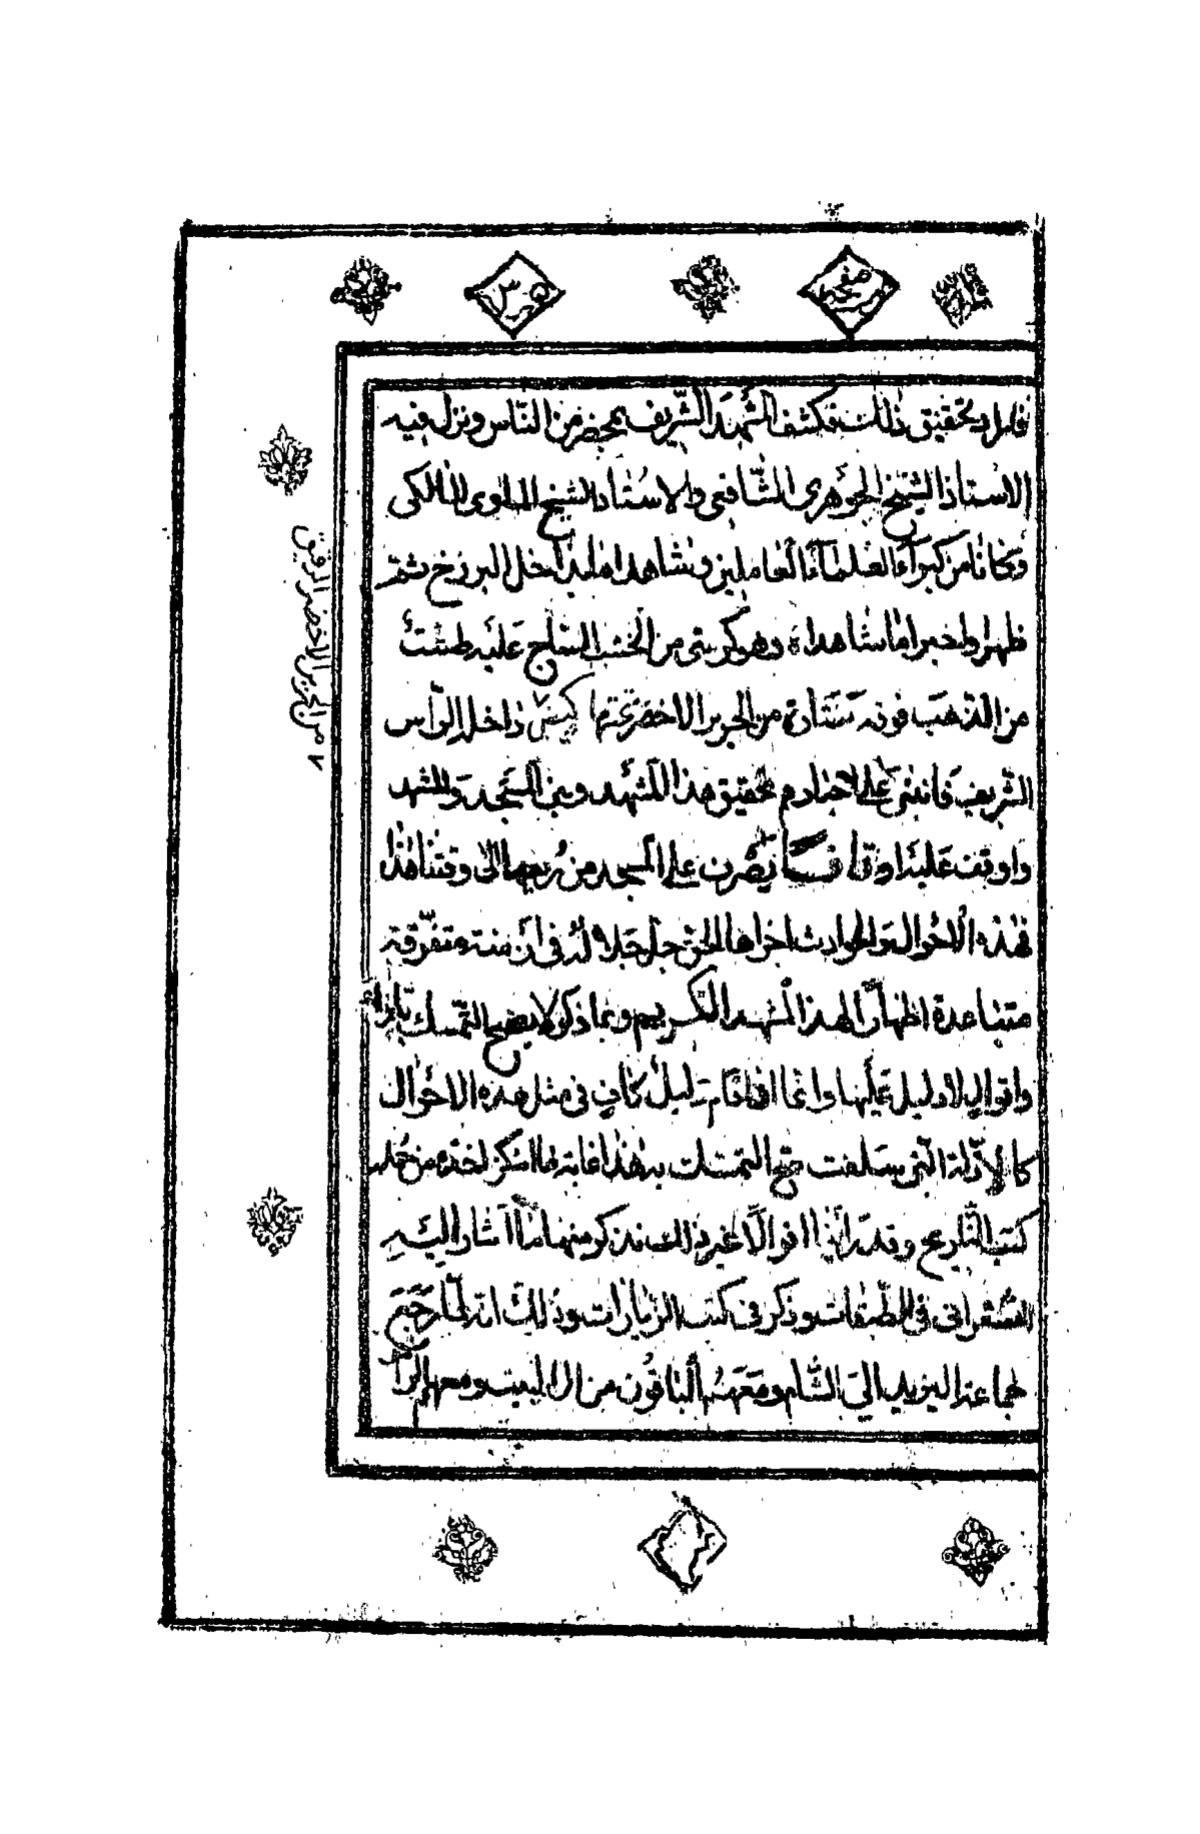 صفحة
٣٥
فاراد تحقيق ذلك فكشف المشهد الشريف بمحضر من الناس ونزل فيه
الاستاذ الشيخ الجوهرى الشافعى والاستاذ الشيخ الملوى المالكى
وكانا من كبراء العلماء العاملين وشاهدا ما بداخل البرزخ ثم
ظهرا واخبرا بما شاهداه وهو كرسى من الخشب الساج عليه طشت
من الذهب فوقه ستارة من الحرير الاخضر تحتها كيس ٧ داخله الرأس
الشريف فانبنى على اخبارهم تحقيق هذا المشهد وبنى المسجد والمشهد
واوقف عليه اوقافا يصرف على المسجد من ريعها الى وقتنا هذا
فهذه الاحوال والحوادث اجراها الحق جل جلاله فى ازمنة متفرقة
متباعدة اظهارا لهذا المشهد الكريم وبما ذكر لا يصح التمسك بآراء
واقوال لا دليل عليها وانما اذا قام دليل كاف فى مثل هذه الاحوال
كالادلة التى سلفت صح التمسك به هذا غاية ما امكن اخذه من جملة
كتب التاريخ وقد رأينا اقوالا غير ذلك نذكر منها ما اشار اليه
الشعرانى فى الطبقات وذكر فى كتب الزيارات وذلك انه لما رجع
جماعة اليزيد الى الشام ومعهم الباقون من آل البيت ومعهم الرأ
٧ من الحرير الاخضر الرقيق